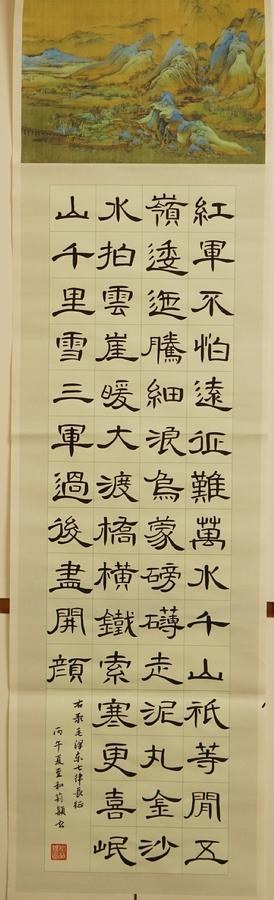 紅軍不怕遠征難萬水千山祇等閒五
嶺逶迤騰細浪烏蒙磅礴走泥丸金沙
水拍雲崖暖大渡橋橫鐵索寒更喜岷
山千里雪三軍過後盡開顏
右录毛澤东七律長征
丙午夏至